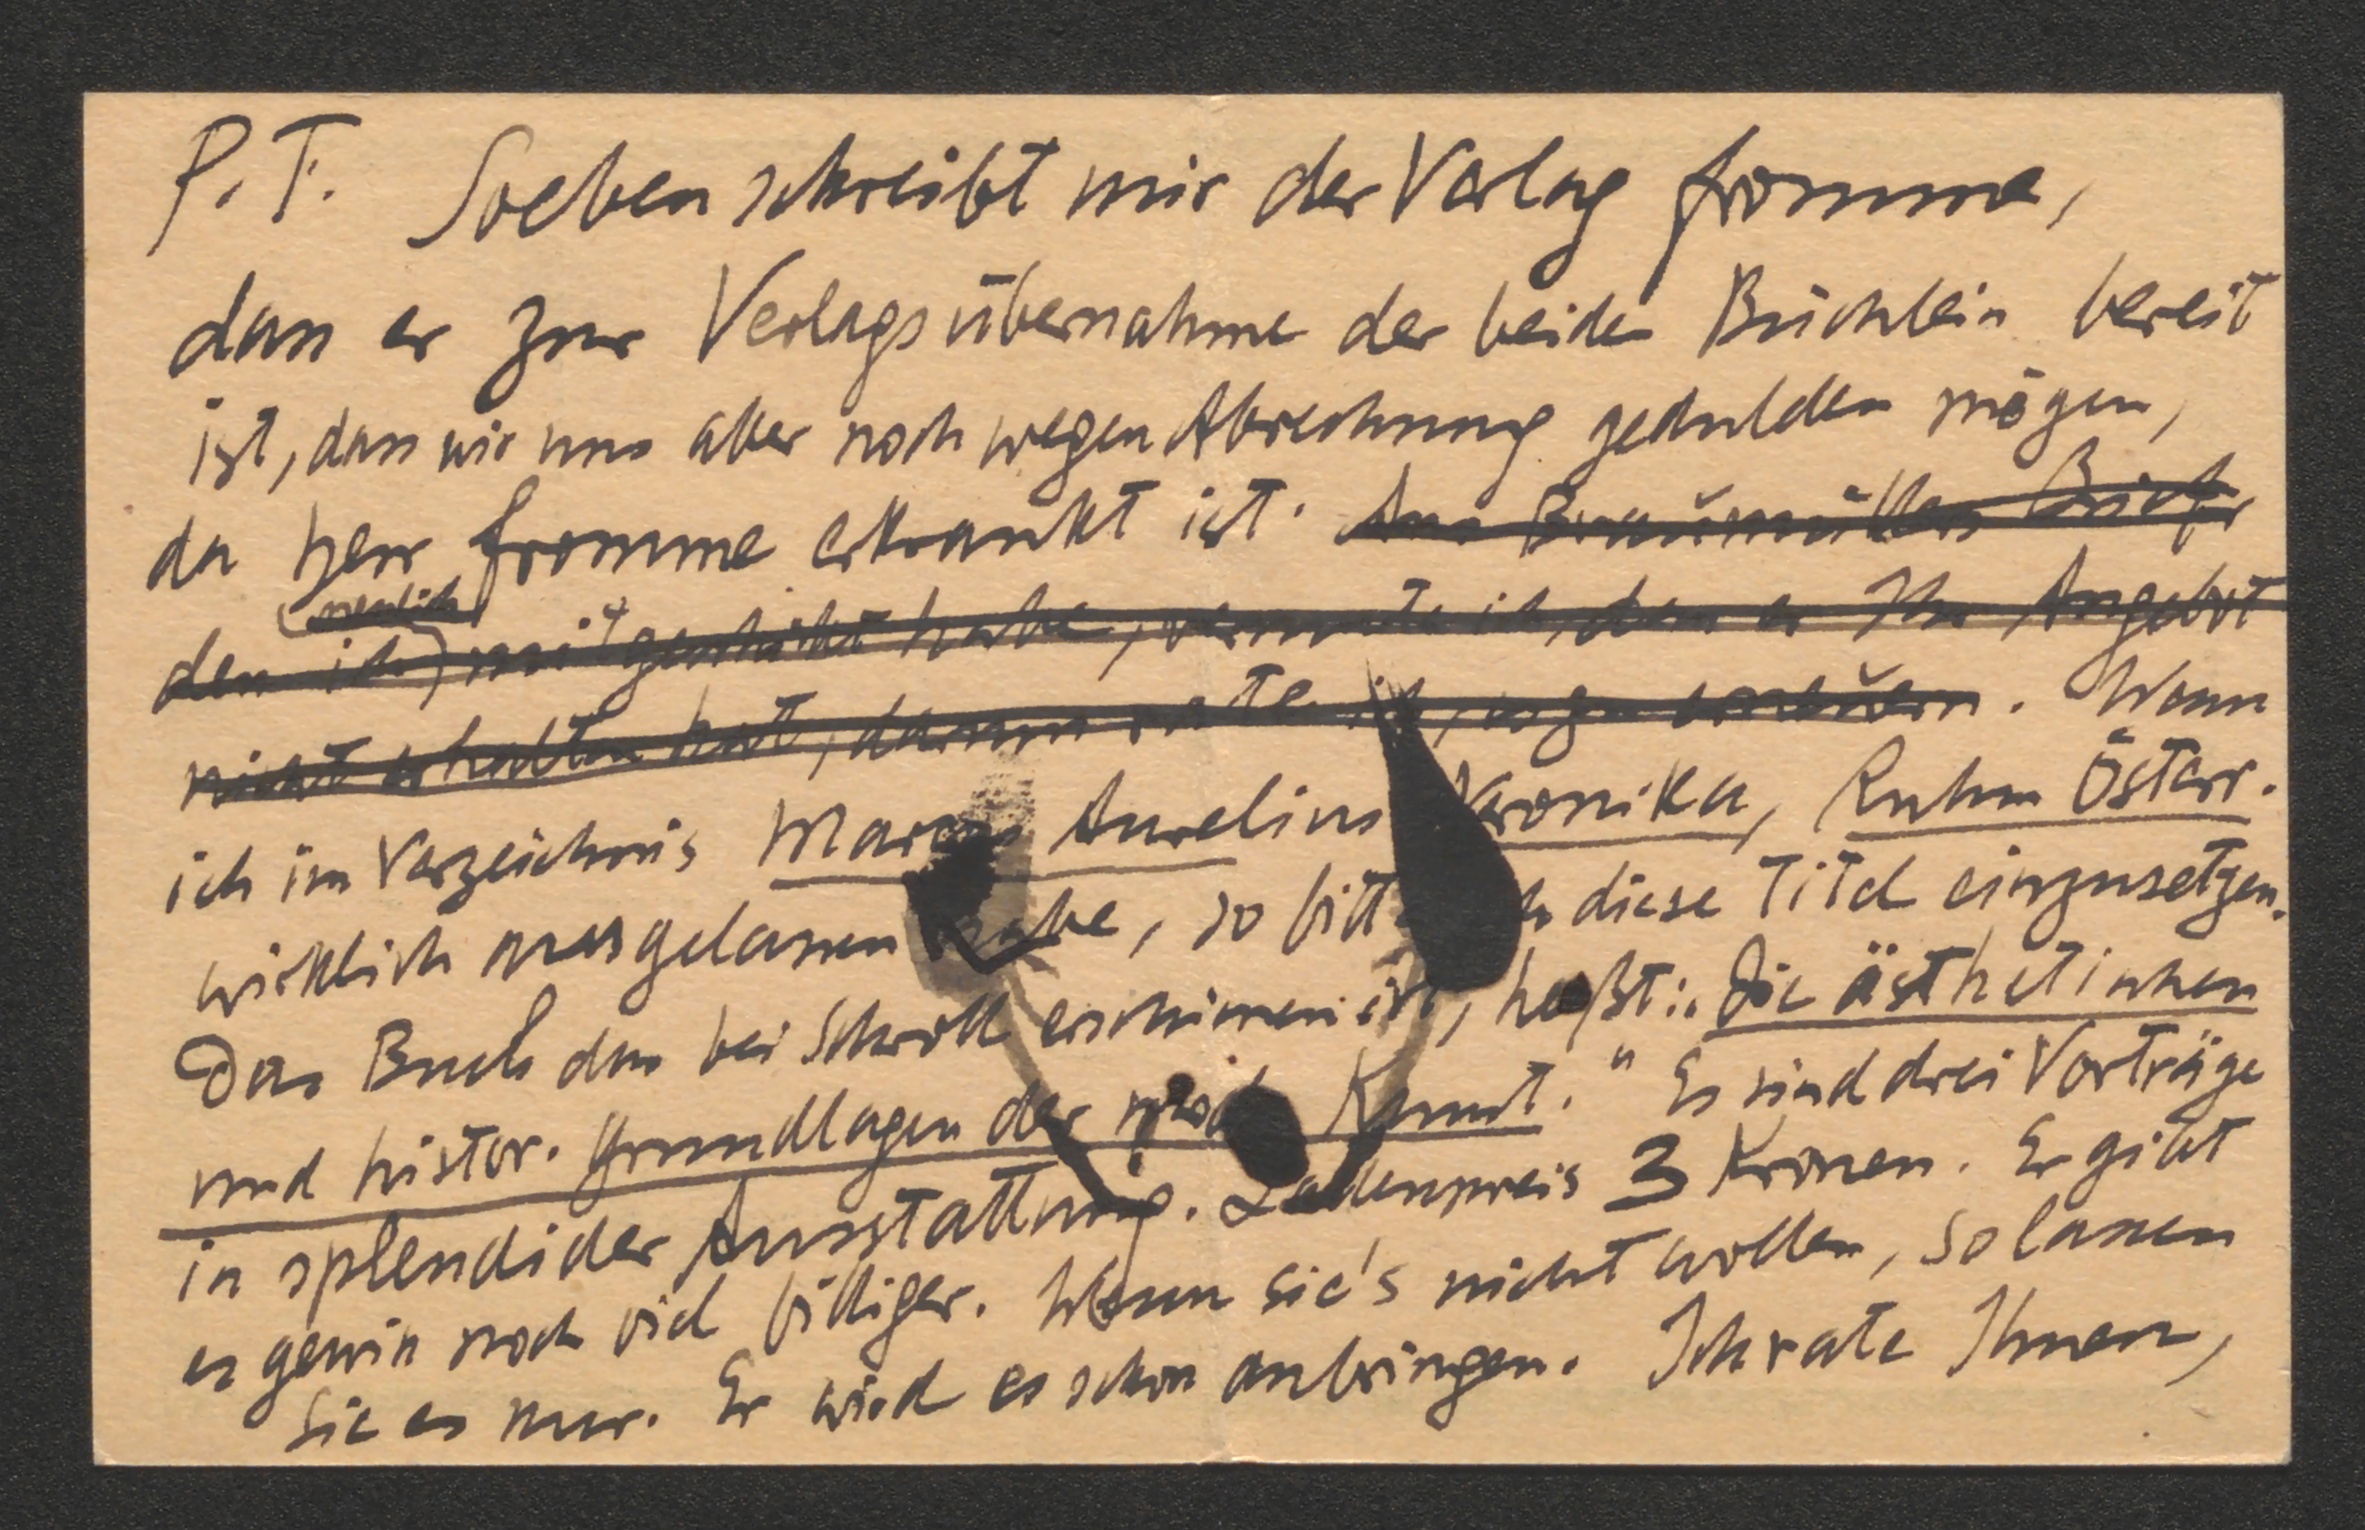 P. T. Soeben schreibt mir der Verlag Fromme,
dass er zur Verlagsübernahme der beiden Büchlein bereit
ist, dass wir uns aber noch wegen Abrechnung gedulden mögen,
da Herr Fromme erkrankt ist. Aus Braumüllers Briefe
neulich
den ich mitgeschickt habe, vermute ich, dass er Ihr Angebot
nicht erhalten hat, darum rate ich, es zu erneuern. Wenn
ich im Verzeichnis Marcus Aurelius Veronika, Ruhm Österr.
wirklich ausgelassen habe, so bitte ich diese Titel einzusetzen.
Das Buch das bei Schroll erschienen ist, heißt: „Die ästhetischen
und histor. Grundlagen der mod. Kunst." Es sind drei Vorträge
in splendider Ausstattung. Ladenpreis 3 Kronen. Er gibt
es gewiss noch viel billiger. Wenn Sie's nicht wollen, so lassen
Sie es nur. Er wird es schon anbringen. Ich rate Ihnen,